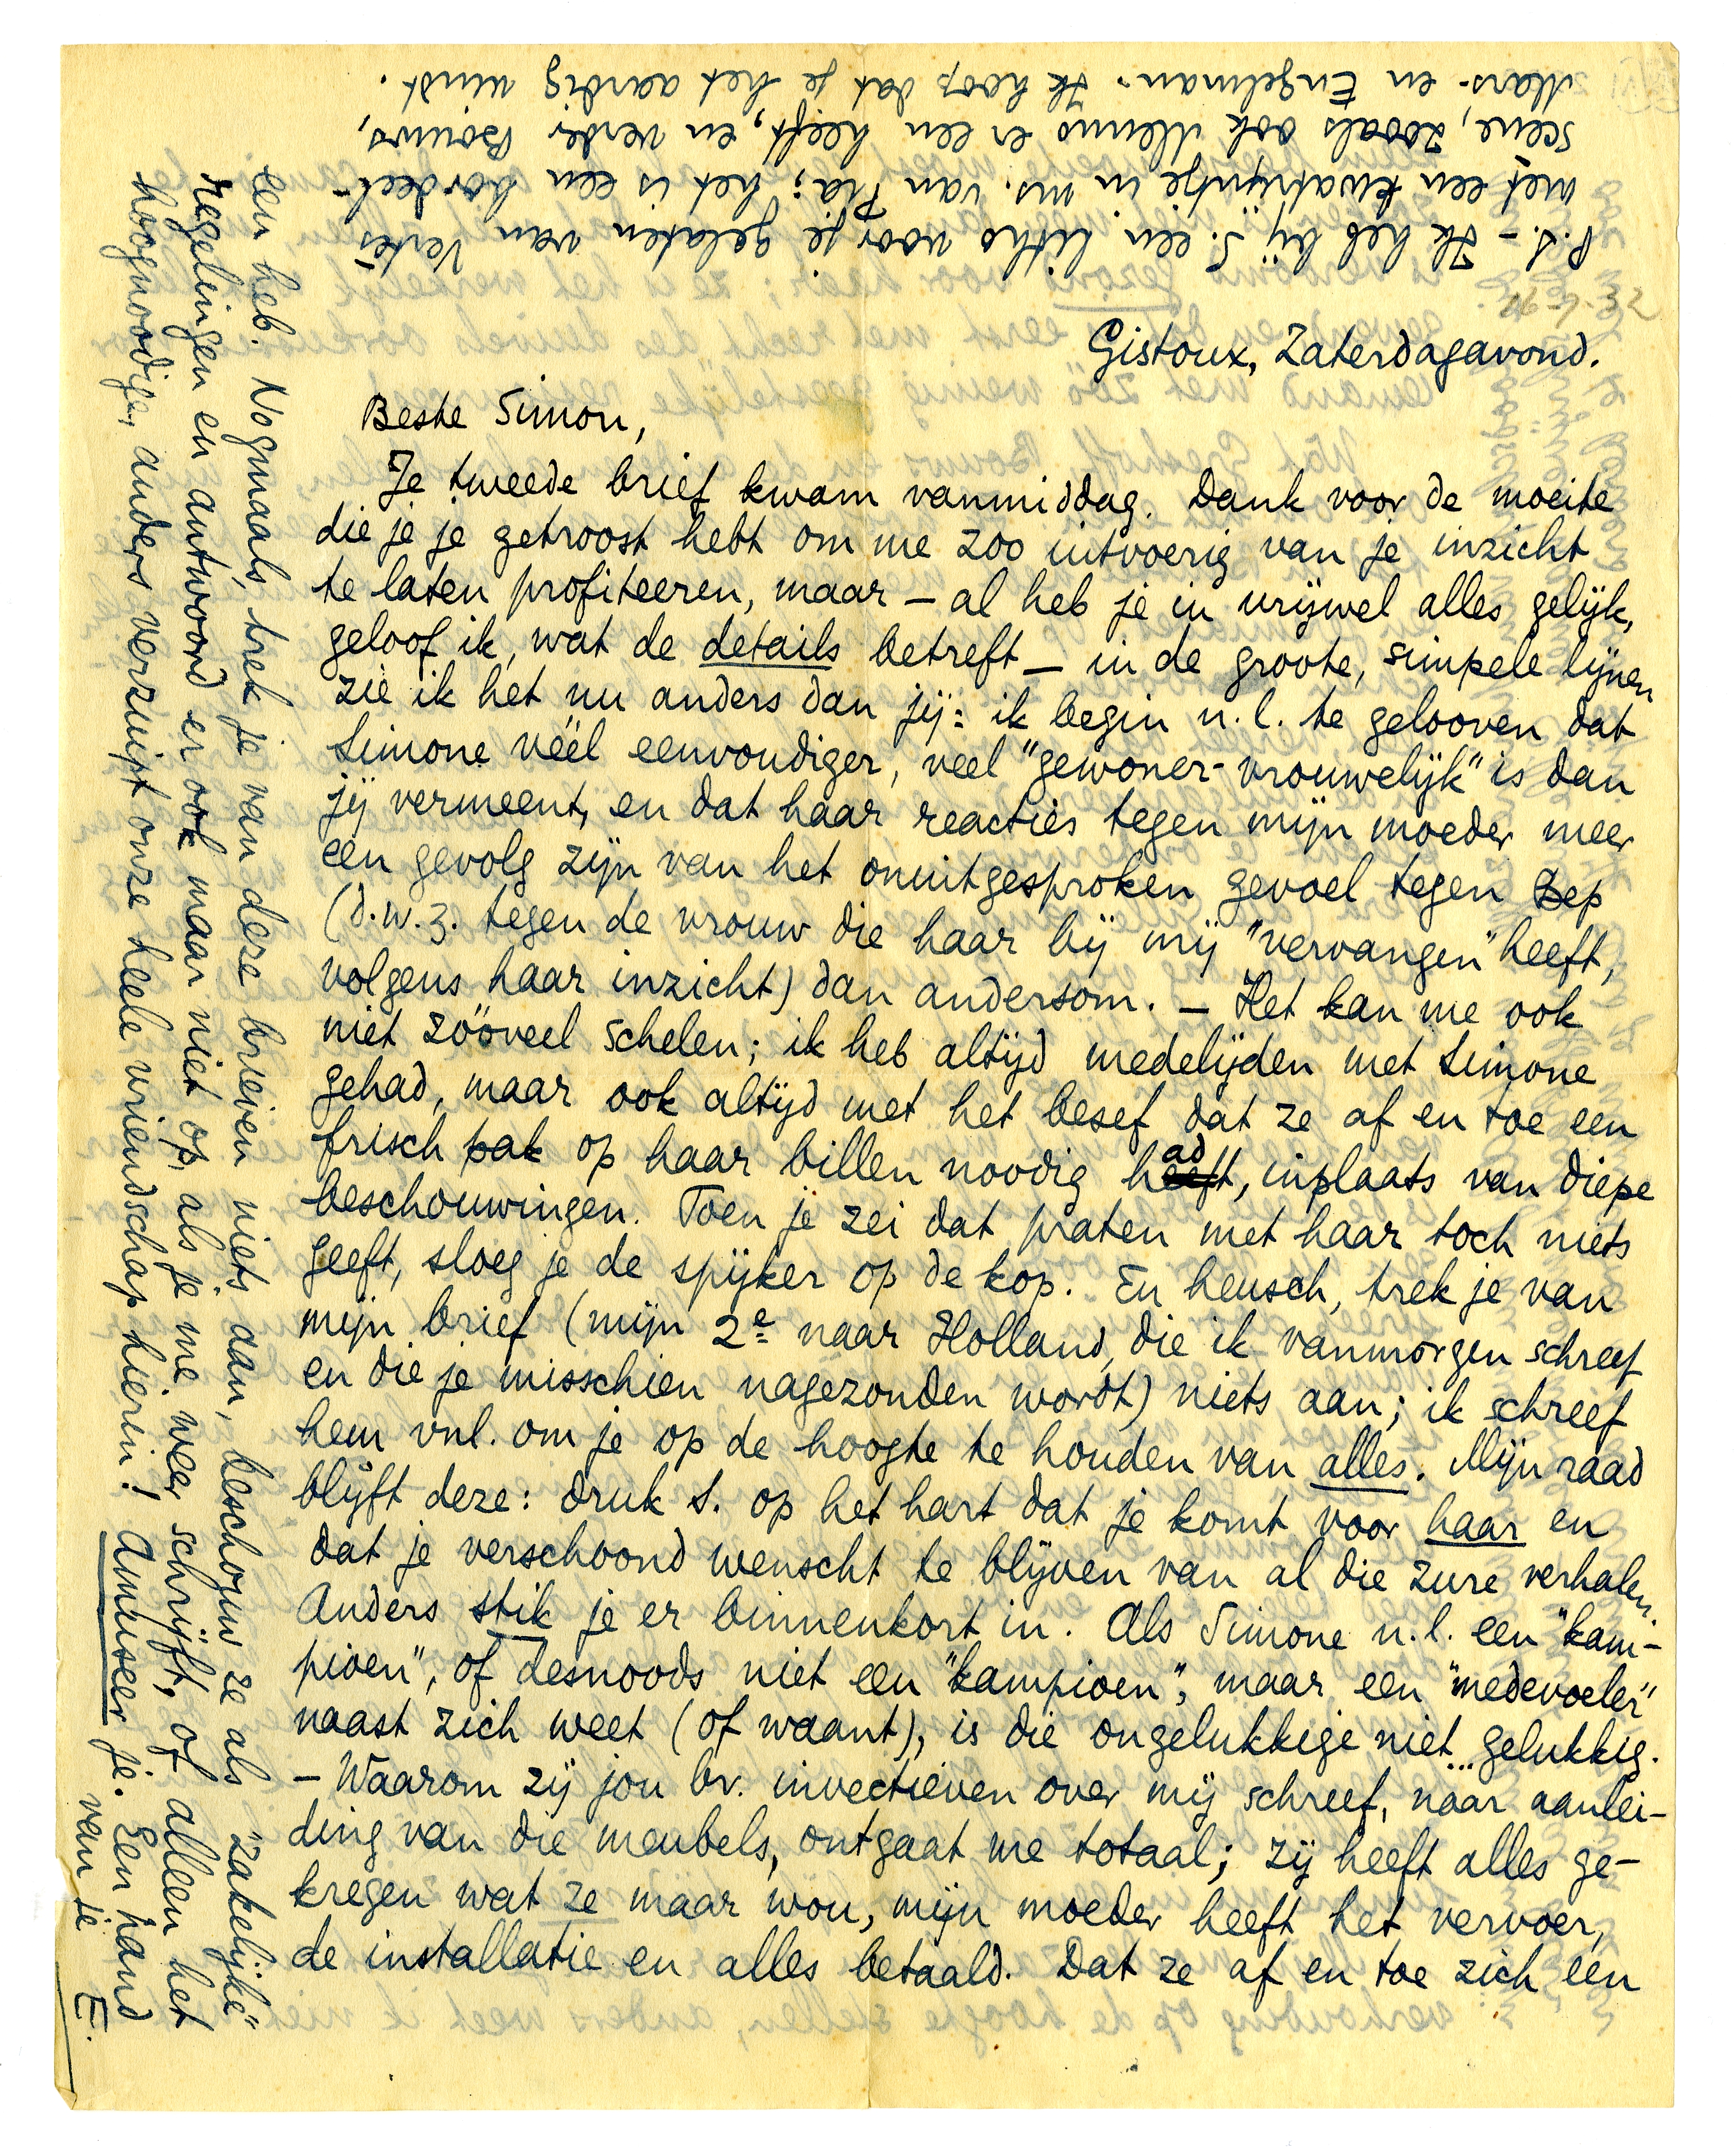 16-7-32
Gistoux, Zaterdagavond.
Beste Simon,
Je tweede brief kwam vanmiddag. Dank voor de moeite
die je je getroost hebt om me zoo uitvoerig van je inzicht
te laten profiteeren, maar – al heb je in vrijwel alles gelijk,
geloof ik, wat de details betreft – in de groote, simpele lijnen
zie ik het nu anders dan jij: ik begin n.l. te gelooven dat
Simone véél eenvoudiger, veel "gewoner-vrouwelijk" is dan
jij vermeent, en dat haar reacties tegen mijn moeder meer
een gevolg zijn van het onuitgesproken gevoel tegen Bep
(d.w.z. tegen de vrouw die haar bij mij "vervangen" heeft,
volgens haar inzicht) dan andersom. – Het kan me ook
niet zóóveel schelen; ik heb altijd medelijden met Simone
gehad, maar ook altijd met het besef dat ze af en toe een
frisch pak op haar billen noodig had, inplaats van diepe
beschouwingen. Toen je zei dat praten met haar toch niets
geeft, sloeg je de spijker op de kop. En heusch, trek je van
mijn brief (mijn 2e naar Holland, die ik vanmorgen schreef
en die je misschien nagezonden wordt) niets aan; ik schreef
hem vnl. om je op de hoogte te houden van alles. Mijn raad
blijft deze: druk S. op het hart dat je komt voor haar en
dat je verschoond wenscht te blijven van al die zure verhalen.
Anders stik je er binnenkort in. Als Simone n.l. een "kam-
pioen", of desnoods niet een "kampioen", maar een "medevoeler"
naast zich weet (of waant), is die ongelukkige niet... gelukkig.
– Waarom zij jou bv. invectieven over mij schreef, naar aanlei-
ding van die meubels, ontgaat me totaal; zij heeft alles ge-
kregen wat ze maar wou, mijn moeder heeft het vervoer,
de installatie en alles betaald. Dat ze af en toe zich een
een heb. Nogmaals, trek je van deze brieven niets aan, beschouw ze als "zakelijke"
regelingen en antwoord er ook maar niet op, als je me weer schrijft, of alleen het
hoognoodige, anders verzuipt onze heele vriendschap hierin! Amuseer je. Een hand
van je E.
P.S. – Ik heb bij S. een litho voor je gelaten van Vertès,
met een kwatrijntje in ms. van Pia; het is een bordeel-
scene, zooals ook Menno er een heeft, en verder Bouws,
Mars- en Engelman. Ik hoop dat je het aardig vindt.